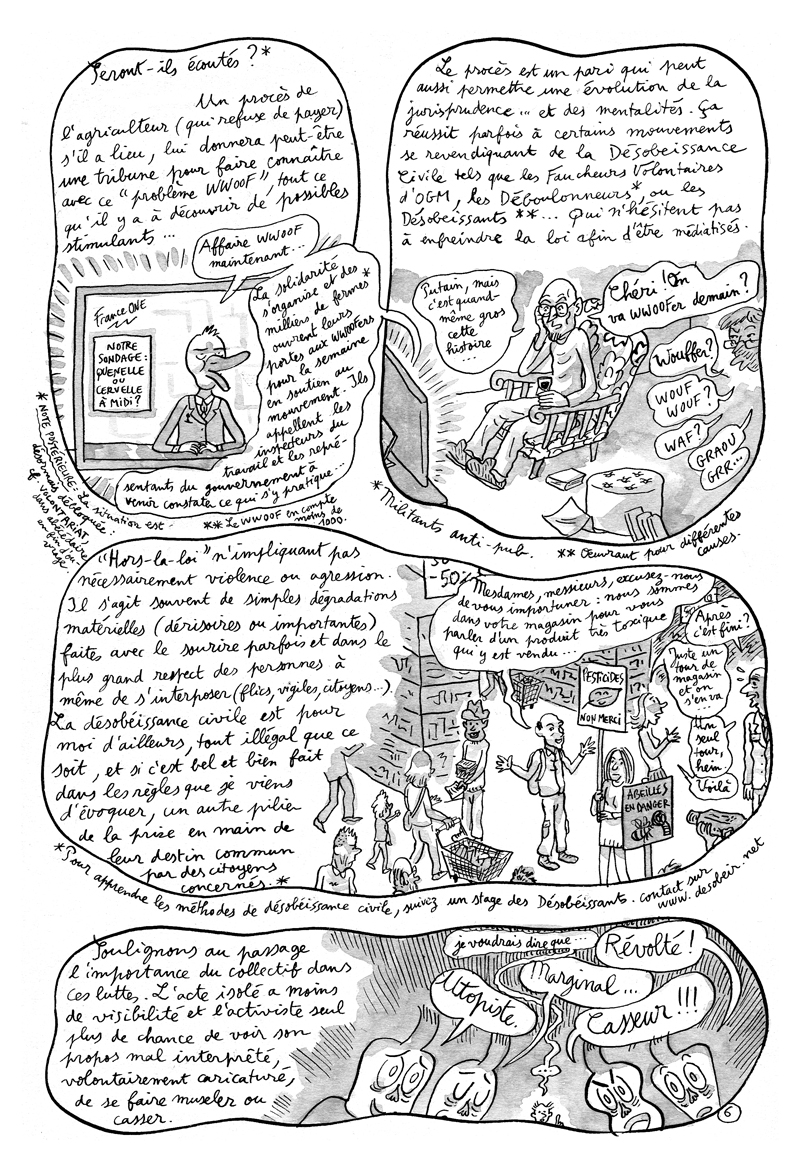 Seront-ils écoutés ?*
Un procès de
l'agriculteur (qui refuse de payer)
s'il a lieu, lui donnera peut-être
une tribune pour faire connaître
avec ce "problème WWOOF", tout ce
qu'il y a à découvrir de possibles
stimulants ...
Affaire WWOOF
maintenant...
France ONE
NOTRE
SONDAGE :
QUENELLE
OU
CERVELLE
À MIDI ?
La solidarité
s'organise et des
milliers de fermes **
ouvrent leurs
portes aux WWOOFers
pour la semaine
en soutien au
mouvement. Ils
appellent les
inspecteurs du
travail et les repré-
sentants du gouvernement à
venir constater ce qui s'y pratique...
* NOTE POSTÉRIEURE : La situation est
désormais débloquée :
cf VOLONTARIAT,
dans abécédaire
en fin d'ou-
vrage
** Le WWOOF en compte
moins de
1000.
Le procès est un pari qui peut
aussi permettre une évolution de la
jurisprudence ... et des mentalités. Ça
réussit parfois à certains mouvements
se revendiquant de la Désobeissance
Civile tels que les Faucheurs Volontaires
d'OGM, les Déboulonneurs*, ou les
Désobeissants ** ... Qui n'hésitent pas
à enfreindre la loi afin d'être médiatisés.
Putain, mais
c'est quand-
même gros
cette
histoire
...
Chéri ! On
va WWOOFer demain ?
Wouffer ?
WOUF
WOUF ?
WAF ?
GRAOU
GRR...
* Militants anti-pub.
** Œuvrant pour différentes
causes.
"Hors-la-loi" n'impliquant pas
nécessairement violence ou agression.
Il s'agit souvent de simples dégradations
matérielles (dérisoires ou importantes)
faites avec le sourire parfois et dans le
plus grand respect des personnes à
même de s'interposer (flics, vigiles, citoyens...).
La désobéissance civile est pour
moi d'ailleurs, tout illégal que ce
soit, et si c'est bel et bien fait
dans les règles que je viens
d'évoquer, un autre pilier
de la prise en main de
leur destin commun
par des citoyens
concernés. *
-50%
Mesdames, messieurs, excusez-nous
de vous importuner : nous sommes
dans votre magasin pour vous
parler d'un produit très toxique
qui y est vendu ...
Après
c'est fini ?
Juste un
tour de
magasin
et on
s'en va ...
Un
seul
tour,
hein
Voilà
PESTICIDES
NON MERCI
ABEILLES
EN DANGER
* Pour apprendre les méthodes de désobéissance civile, suivez un stage des Désobéissants. contact sur
www.desobeir.net
Soulignons au passage
l'importance du collectif dans
ces luttes. L'acte isolé a moins
de visibilité et l'activiste seul
plus de chance de voir son
propos mal interprété,
volontairement caricaturé,
de se faire museler ou
casser.
je voudrais dire que ...
Révolté !
Marginal ...
Utopiste.
Casseur !!!
6